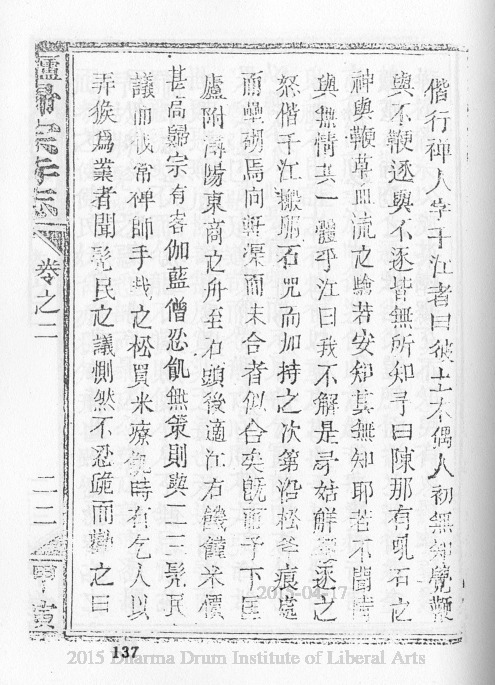 偕行禪人字千江者曰彼土木偶人初無知覺鞭
與不鞭逐與不逐皆無所知予曰陳那有吼石之
神與鞭草血流之驗若安知其無知耶若不聞情
與無情共一體乎江曰我不解是予姑鮮 逐之
怒偕千江 石咒而加持之次第沿松斧痕處
而壘 焉向 而未合者似合矣既而予下匡
廬附潯陽東商之舟至石頭後適江右饑饉米價
甚高歸宗有客伽藍僧忍飢無策則與二三髡民
議而伐常禪師手栽之松買米療飢時有乞人以
弄猴為業者聞髡民之議惻然不忍跪而 之曰
廬歸宗寺志
卷之二
二二
甲寅
2015-04-17
137
2015 Dharma Drum Institute of Liberal Arts